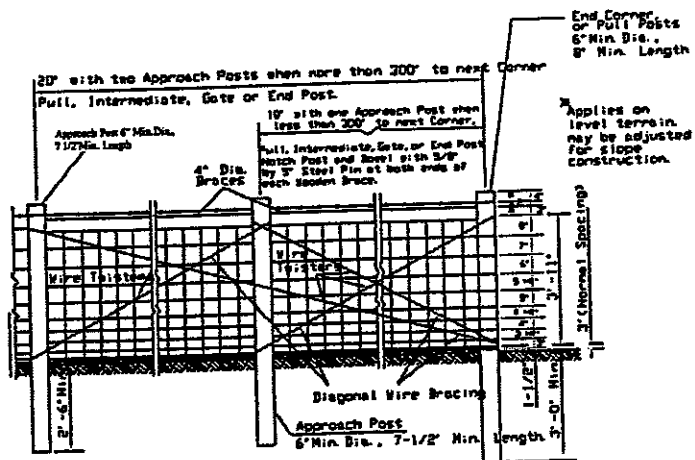 End Corner
or Pull Posts
6" Min. Dia.,
8' Min. Length
20' with two Approach Posts when more than 300' to next Corner
Pull, Intermediate, Gate or End Post.
10' with one Approach Post when
less than 300' to next Corner,
Pull, Intermediate, Gate, or End Post
Notch Post and Dowel with 5/8"
by 5" Steel Pin at both ends of
each Wooden Brace.
Approach Post 6" Min. Dia.,
7 1/2' Min. Length
*Applies on
level terrain
may be adjusted
for slope
construction.
4" Dia.
Braces
8"
7"
6"
Wire Twisters
Wire
Twisters
3'-11"
3" (Normal Spacing)
Diagonal Wire Bracing
1-1/2"
2'-6" Min.
3'-0" Min.
Approach Post
6" Min. Dia., 7-1/2' Min. Length